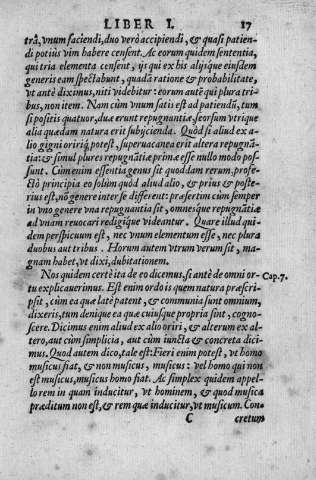 LIBER I. 17
trà, vnum faciendi, duo verò accipiendi, & quasi patien-
di potiùs vim habere censent. Ac eorum quidem sententia,
qui tria elementa censent, ijs qui ex his alijsque eiusdem
generis eam spectabunt, quadã ratione & probabilitate,
vt antè diximus, niti videbitur: eorum autẽ qui plura tri-
bus, non item. Nam cùm vnum satis est ad patiendũ, tum
si positis quatuor, duæ erunt repugnantiæ, seorsum vtrique
alia quædam natura erit subijcienda. Quòd si aliud ex a-
lio gigni oririq́ potest, superuacanea erit altera repugnã-
tia: & simul plures repugnãtiæ primæ esse nullo modo pos-
sunt. Cùm enim essentia genus sit quoddam rerum, profe-
ctò principia eo solùm quòd aliud alio, & prius & poste-
rius est, nõ genere inter se different: præsertim cùm semper
in vno genere vna repugnantia sit, omnesque repugnãtiæ
ad vnam reuocari redigíque videantur. Quare illud qui-
dem perspicuum est, nec vnum elementum esse, nec plura
duobus aut tribus. Horum autem vtrum verum sit, ma-
gnam habet, vt dixi, dubitationem.
Nos quidem certè ita de eo dicemus, si antè de omni or- Cap. 7.
tu explicauerimus. Est enim ordo is quem natura præscri-
psit, cùm ea quæ latè patent, & communia sunt omnium,
dixeris, tum denique ea quæ cuiusque propria sint, cogno-
scere. Dicimus enim aliud ex alio oriri, & alterum ex al-
tero, aut cùm simplicia, aut cùm iuncta & concreta dici-
mus. Quod autem dico, tale est: Fieri enim potest, vt homo
musicus fiat, & non musicus, musicus: vel homo qui non
est musicus, musicus homo fiat. Ac simplex quidem appel-
lo rem in quam inducitur, vt hominem, & quod musica
præditum non est, & rem quæ inducitur, vt musicum. Con-
C cretum